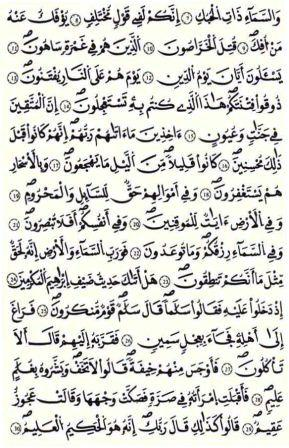 وَالسَّمَآءِ ذَاتِ الْحُبُكِ ٧ إِنَّكُمْ لَفِى قَوْلٍ مُّخْتَلِفٍ ٨ يُؤْفَكُ عَنْهُ
مَنْ أُفِكَ ٩ قُتِلَ الْخَرَّٰصُونَ ١٠ الَّذِينَ هُمْ فِى غَمْرَةٍ سَاهُونَ ١١
يَسْـَٔلُونَ أَيَّانَ يَوْمُ الدِّينِ ١٢ يَوْمَ هُمْ عَلَى النَّارِ يُفْتَنُونَ ١٣
ذُوقُوا۟ فِتْنَتَكُمْ هَٰذَا الَّذِى كُنتُم بِهِۦ تَسْتَعْجِلُونَ ١٤ إِنَّ الْمُتَّقِينَ
فِى جَنَّٰتٍ وَعُيُونٍ ١٥ ءَاخِذِينَ مَآ ءَاتَىٰهُمْ رَبُّهُمْ إِنَّهُمْ كَانُوا۟ قَبْلَ
ذَٰلِكَ مُحْسِنِينَ ١٦ كَانُوا۟ قَلِيلًا مِّنَ الَّيْلِ مَا يَهْجَعُونَ ١٧ وَبِالْأَسْحَارِ
هُمْ يَسْتَغْفِرُونَ ١٨ وَفِىٓ أَمْوَٰلِهِمْ حَقٌّ لِّلسَّآئِلِ وَالْمَحْرُومِ ١٩
وَفِى الْأَرْضِ ءَايَٰتٌ لِّلْمُوقِنِينَ ٢٠ وَفِىٓ أَنفُسِكُمْ أَفَلَا تُبْصِرُونَ ٢١
وَفِى السَّمَآءِ رِزْقُكُمْ وَمَا تُوعَدُونَ ٢٢ فَوَرَبِّ السَّمَآءِ وَالْأَرْضِ إِنَّهُۥ لَحَقٌّ
مِّثْلَ مَآ أَنَّكُمْ تَنطِقُونَ ٢٣ هَلْ أَتَىٰكَ حَدِيثُ ضَيْفِ إِبْرَٰهِيمَ الْمُكْرَمِينَ ٢٤
إِذْ دَخَلُوا۟ عَلَيْهِ فَقَالُوا۟ سَلَٰمًا قَالَ سَلَٰمٌ قَوْمٌ مُّنكَرُونَ ٢٥ فَرَاغَ
إِلَىٰٓ أَهْلِهِۦ فَجَآءَ بِعِجْلٍ سَمِينٍ ٢٦ فَقَرَّبَهُۥٓ إِلَيْهِمْ قَالَ أَلَا
تَأْكُلُونَ ٢٧ فَأَوْجَسَ مِنْهُمْ خِيفَةً قَالُوا۟ لَا تَخَفْ وَبَشَّرُوهُ بِغُلَٰمٍ
عَلِيمٍ ٢٨ فَأَقْبَلَتِ امْرَأَتُهُۥ فِى صَرَّةٍ فَصَكَّتْ وَجْهَهَا وَقَالَتْ عَجُوزٌ
عَقِيمٌ ٢٩ قَالُوا۟ كَذَٰلِكِ قَالَ رَبُّكِ إِنَّهُۥ هُوَ الْحَكِيمُ الْعَلِيمُ ٣٠